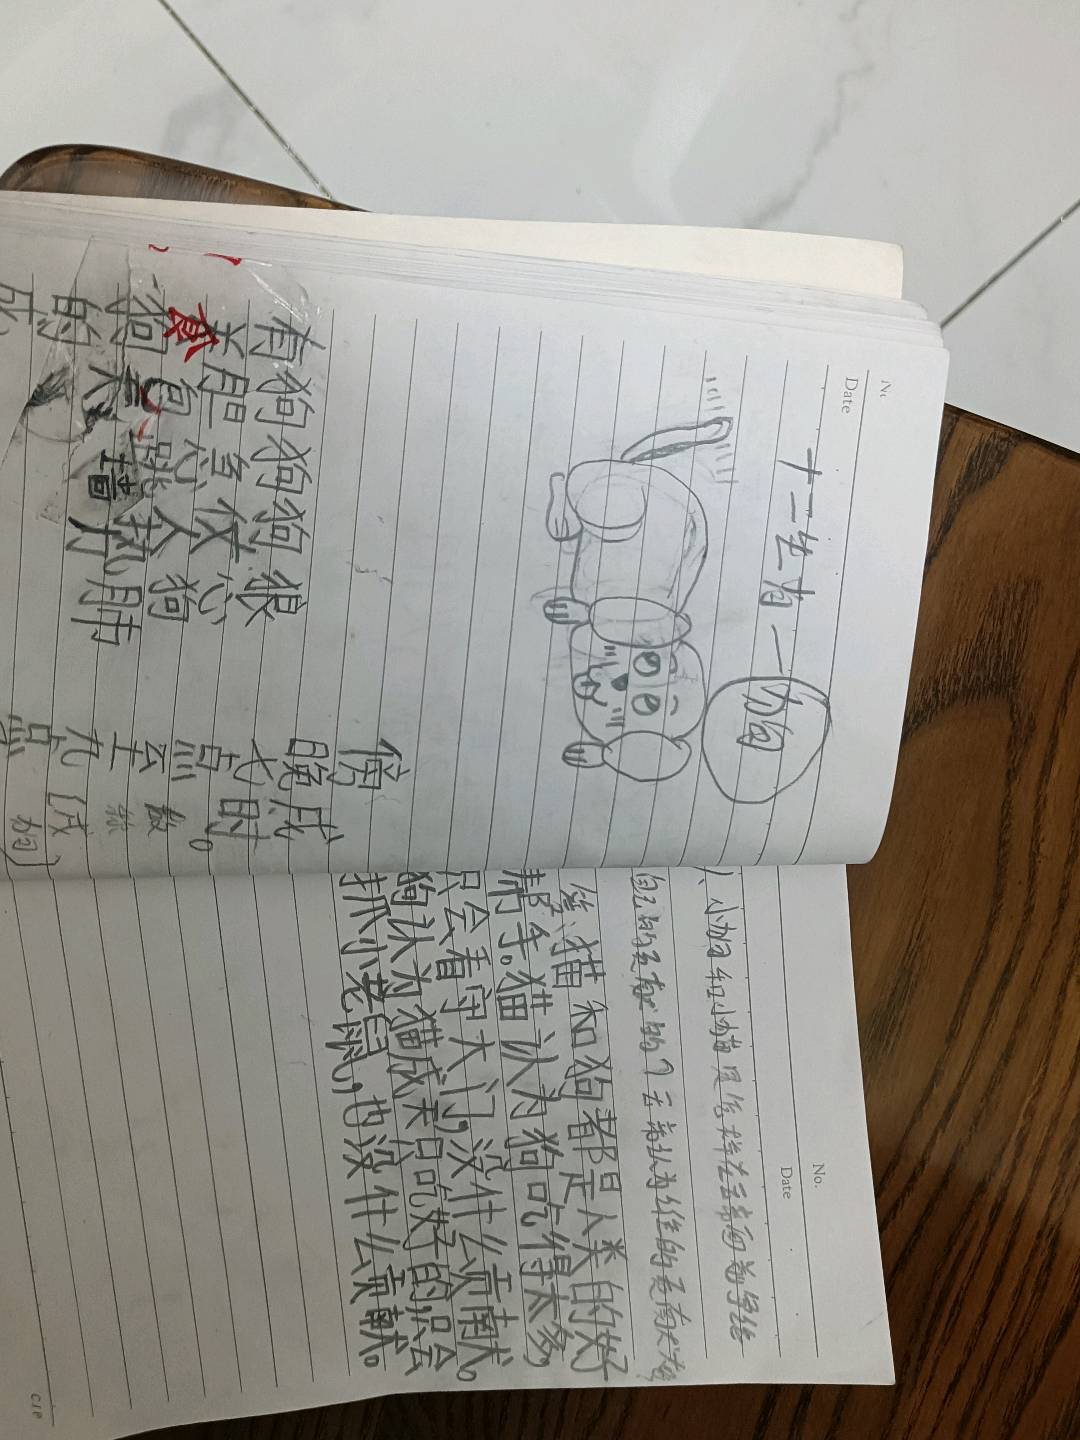 Date
十二生肖一狗
有关狗的
狗胆包天
狗急跳墙
狗仗人
狼心狗肺
傍晚七点
九点
戌时。
戌狗
No.
Date
1、小狗和小猫是怎样在主人面前争论
自己的贡献的？主人认为谁的贡献大
答:猫和狗都是人类的好
帮手。猫认为狗吃得太多,
只会看守大门,没什么贡献。
狗认为猫成天只吃好的只会
打抓小老鼠,也没什么贡献。